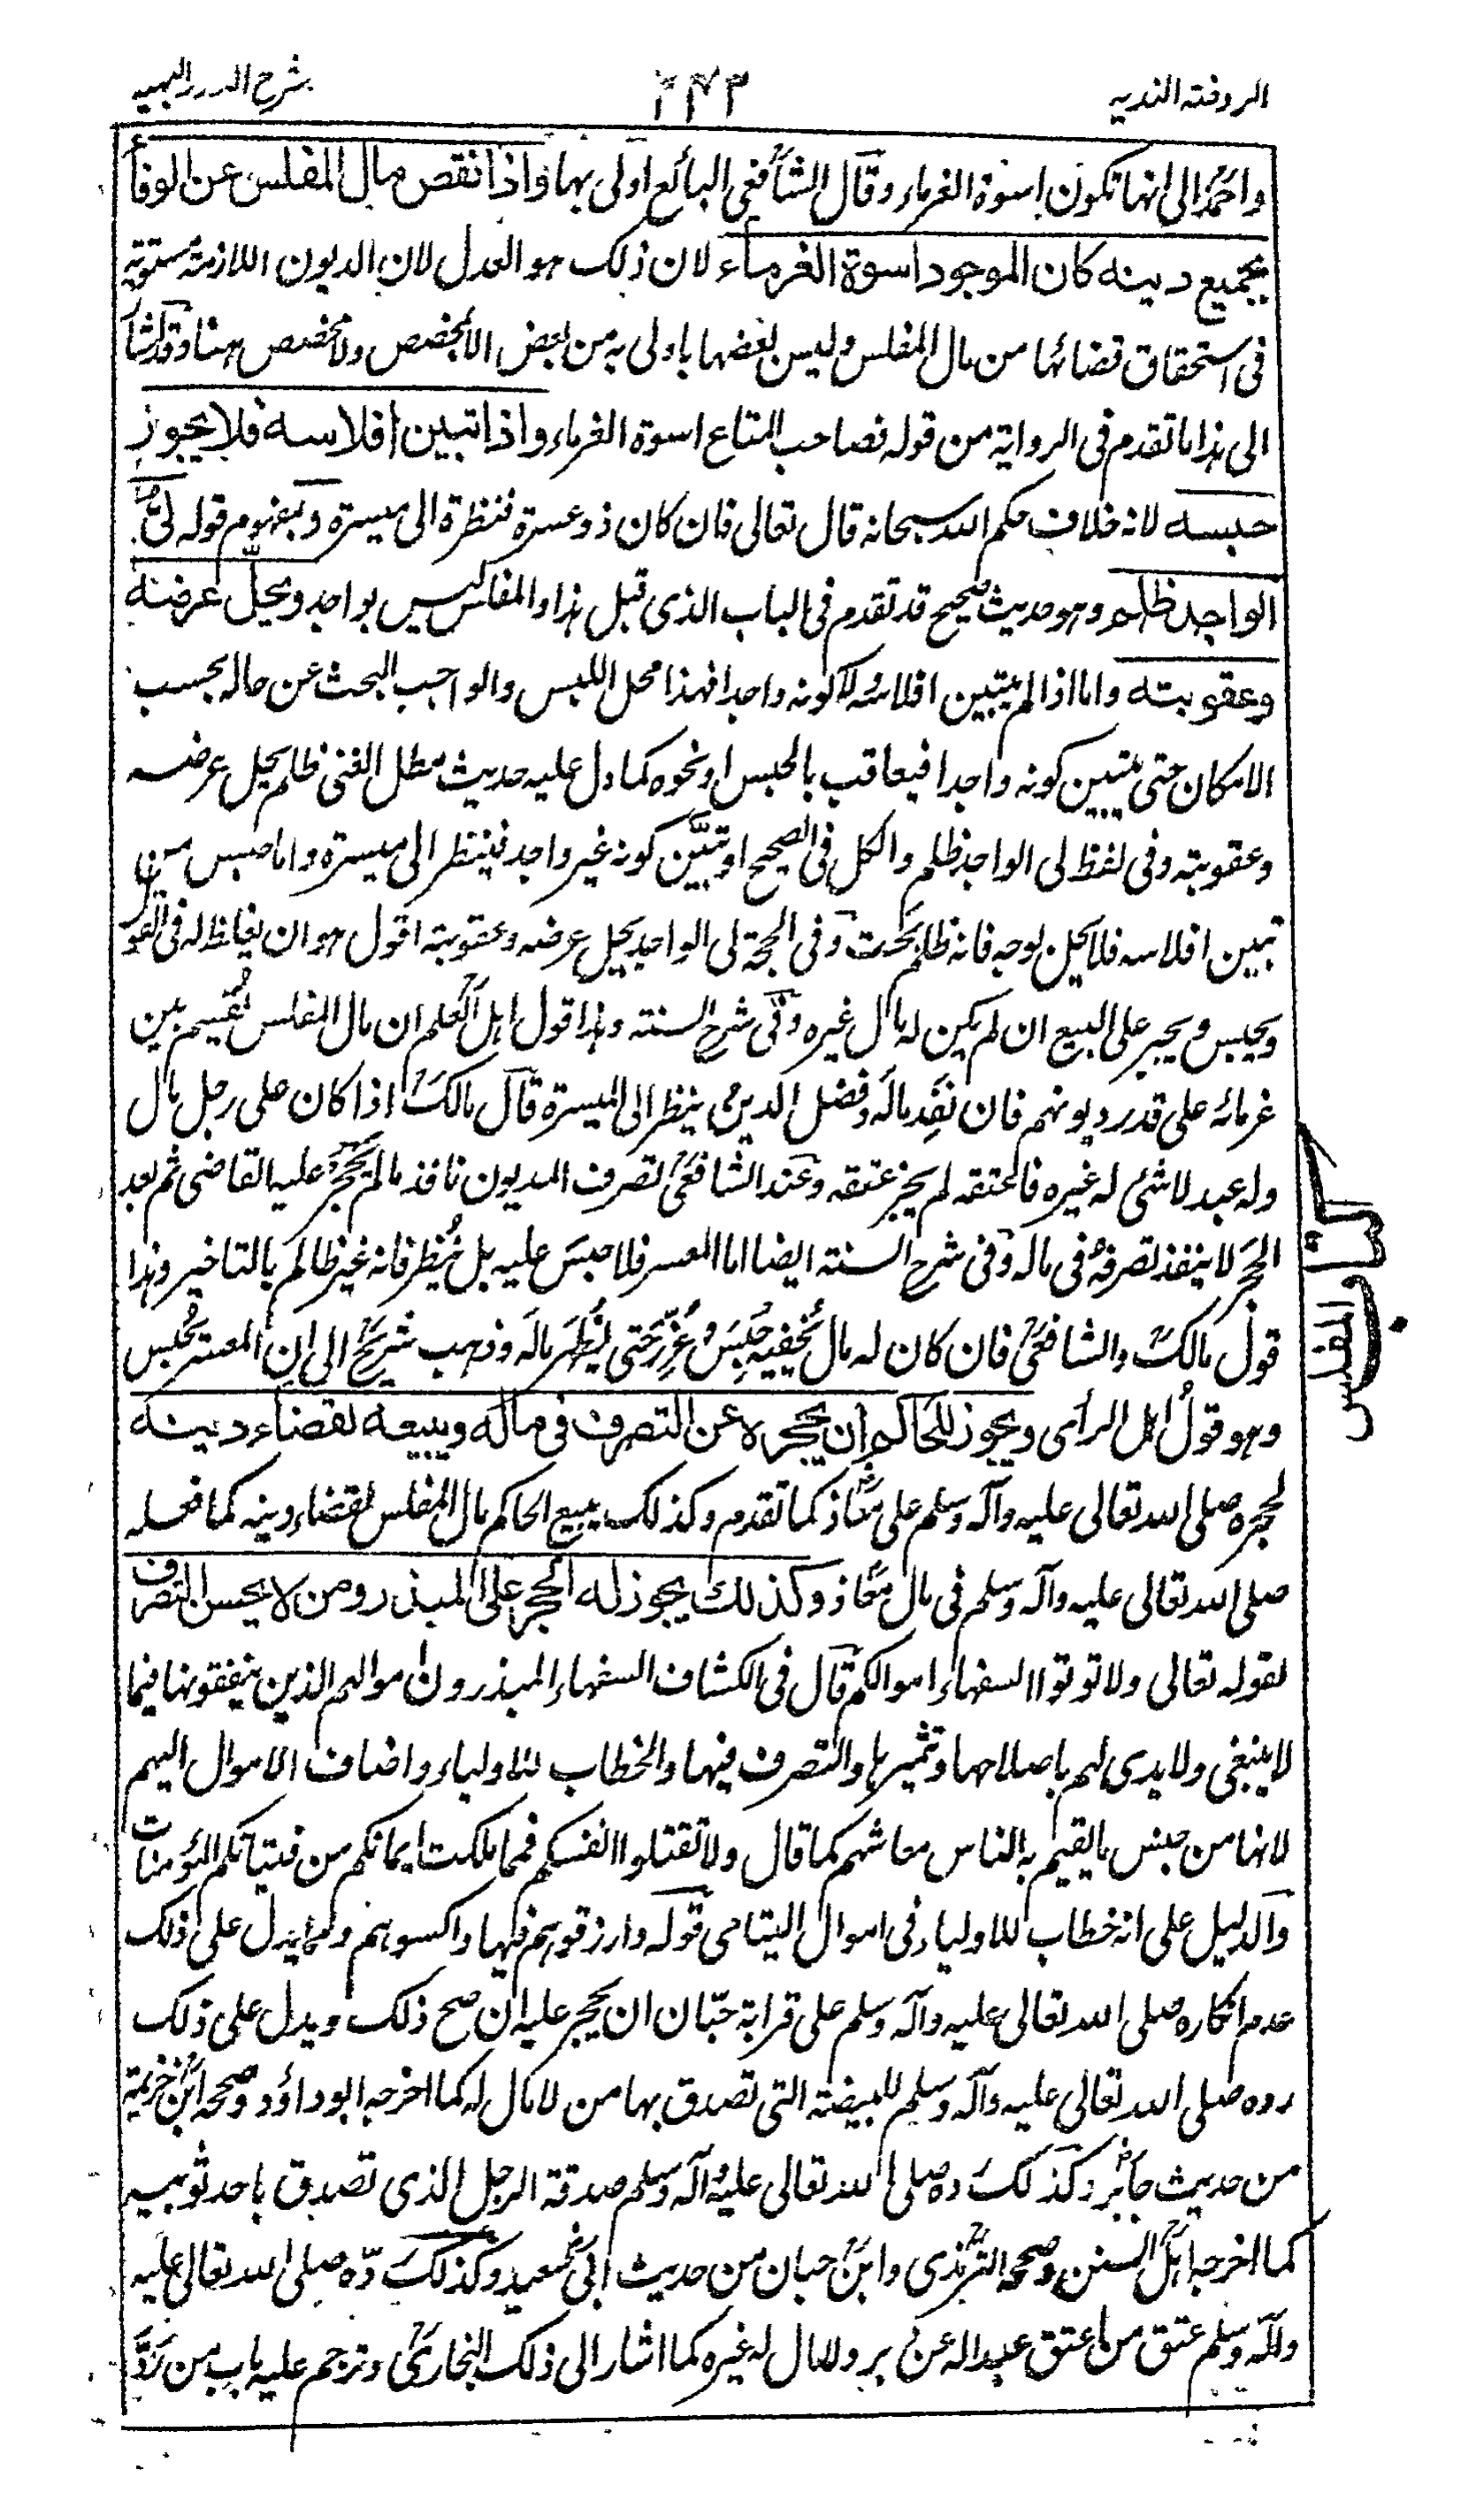 الروضة الندية ٢٤٣ شرح الدرر البهية
واحمد الى انها تكون اسوة الغرماء وقال الشافعي البائع اولى بها واذا نقص مال المفلس عن الوفاء
بجميع دينه كان الموجود اسوة الغرماء لان ذلك هو العدل لان الديون اللازمة مستوية
في استحقاق قضائها من مال المفلس وليس بعضها باولى به من بعض الا لمخصص ولا مخصص ههنا وقد اشار
الى هذا ما تقدم في الرواية من قوله فصاحب المتاع اسوة الغرماء واذا تبين افلاسه فلا يجوز
حبسه لانه خلاف حكم الله سبحانه قال تعالى فان كان ذو عسرة فنظرة الى ميسرة وبمفهوم قوله لي
الواجد ظلم وهو حديث صحيح قد تقدم في الباب الذي قبل هذا والمفلس ليس بواجد ويحل عرضه
وعقوبته واما اذا لم يتبين افلاسه ولا كونه واجدا فهذا محل اللبس والواجب البحث عن حاله بحسب
الامكان حتى يتبين كونه واجدا فيعاقب بالحبس او نحوه كما دل عليه حديث مطل الغني ظلم يحل عرضه
وعقوبته وفي لفظ لي الواجد ظلم والكل في الصحيح او تبين كونه غير واجد فينظر الى ميسرة واما حبس من
تبين افلاسه فلا يحل بوجه فانه ظلم بحت وفي الحجة لي الواجد يحل عرضه وعقوبته اقول هو ان يغلظ له في القول
ويحبس ويجبر على البيع ان لم يكن له مال غيره وفي شرح السنة وهذا قول اهل العلم ان مال المفلس يقسم بين
غرمائه على قدر ديونهم فان نفد ماله وفضل الدين ينظر الى الميسرة قال مالك اذا كان على رجل مال
وله عبد لا شئ له غيره فاعتقه لم يجز عتقه وعند الشافعي تصرف المديون نافذ ما لم يحجر عليه القاضي ثم بعد
الحجر لا ينفذ تصرفه في ماله وفي شرح السنة ايضا اما المعسر فلا حبس عليه بل ينظر فانه غير ظالم بالتاخير وهذا
قول مالك والشافعي فان كان له مال يخفيه حبس وعزر حتى يظهر ماله وذهب شريح الى ان المعسر يحبس
وهو قول اهل الرأى ويجوز للحاكم ان يحجره عن التصرف في ماله ويبيعه لقضاء دينه
لحجره صلى الله تعالى عليه وآله وسلم على معاذ كما تقدم وكذلك يبيع الحاكم مال المفلس لقضاء دينه كما فعله
صلى الله تعالى عليه وآله وسلم في مال معاذ وكذلك يجوز له الحجر على المبذر ومن لا يحسن التصرف
لقوله تعالى ولا توتوا السفهاء اموالكم قال في الكشاف السفهاء المبذرون اموالهم الذين ينفقونها فيما
لا ينبغي ولا يدى لهم باصلاحها وتثميرها والتصرف فيها والخطاب للاولياء واضاف الاموال اليهم
لانها من جنس ما يقيم به الناس معاشهم كما قال ولا تقتلوا انفسكم فمما ملكت ايمانكم من فتياتكم المؤمنات
والدليل على انه خطاب للاولياء في اموال اليتامى قوله وارزقوهم فيها واكسوهم ومما يدل على ذلك
عدم انكاره صلى الله تعالى عليه وآله وسلم على قرابة حبان ان يحجر عليه ان صح ذلك ويدل على ذلك
رده صلى الله تعالى عليه وآله وسلم للبيضة التي تصدق بها من لا مال له كما اخرجه ابو داؤد وصححه ابن خزيمة
من حديث جابر وكذلك رده صلى الله تعالى عليه وآله وسلم صدقة الرجل الذي تصدق باحد ثوبيه
كما اخرجه اهل السنن وصححه الترمذي وابن حبان من حديث ابي سعيد وكذلك رده صلى الله تعالى عليه
وآله وسلم عتق من اعتق عبدا له عن دبر ولا مال له غيره كما اشار الى ذلك البخاري وترجم عليه باب من رد